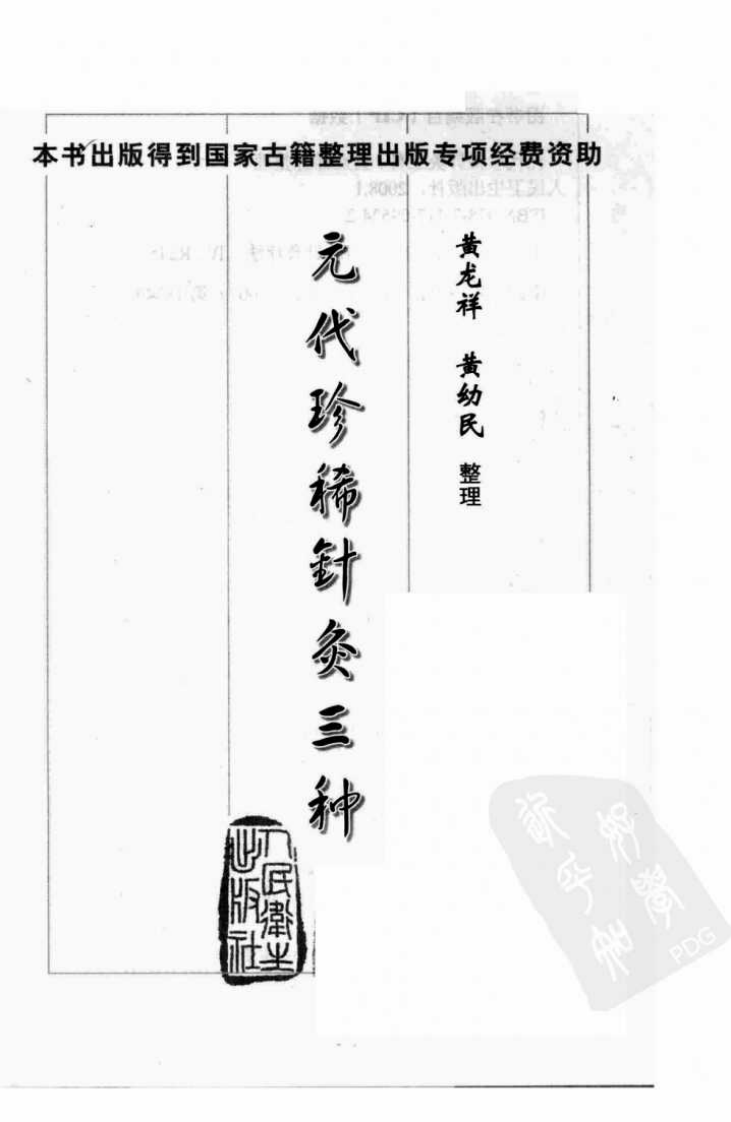 本书出版得到国家古籍整理出版专项经费资助
黄龙祥 黄幼民 整理
元代珍稀针灸三种
人民卫生出版社
PDG